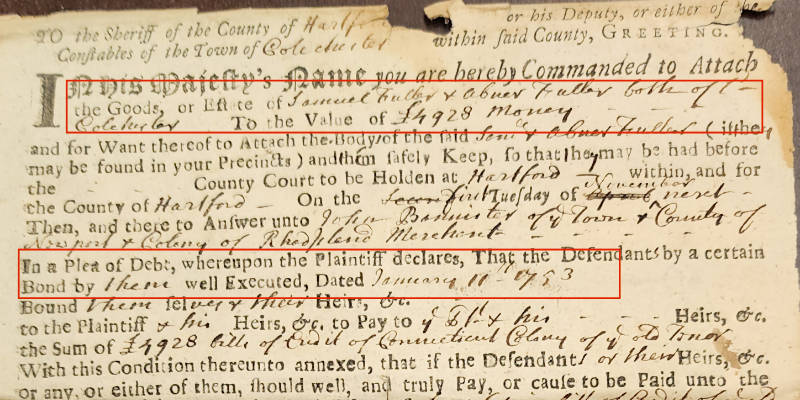 TO the Sheriff of the County of Hartford or his Deputy, or either of the
Constables of the Town of Colchester within said County, GREETING.
IN His Majesty's Name you are hereby Commanded to Attach
the Goods, or Estate of Samuel Fuller & Abner Fuller both of
Colchester To the Value of £4928 Money
and for Want thereof to Attach the Body of the said Saml & Abner Fuller (if they
may be found in your Precincts) and them safely Keep, so that they may be had before
the County Court to be Holden at Hartford within, and for
the County of Hartford On the first Tuesday of November next
Then, and there to Answer unto John Bannister of ye Town & County of
Newport & Colony of Rhod Island Merchant
In a Plea of Debt, whereupon the Plaintiff declares, That the Defendants by a certain
Bond by them well Executed, Dated January 11th 1753
Bound them selves & their Heirs, &c.
to the Plaintiff & his Heirs, &c. to Pay to ye Plt & his Heirs, &c.
the Sum of £4928 bills of Credit of Connecticut Colony of ye old Tenor
With this Condition thereunto annexed, that if the Defendants or their Heirs, &c.
or any, or either of them, should well, and truly Pay, or cause to be Paid unto the